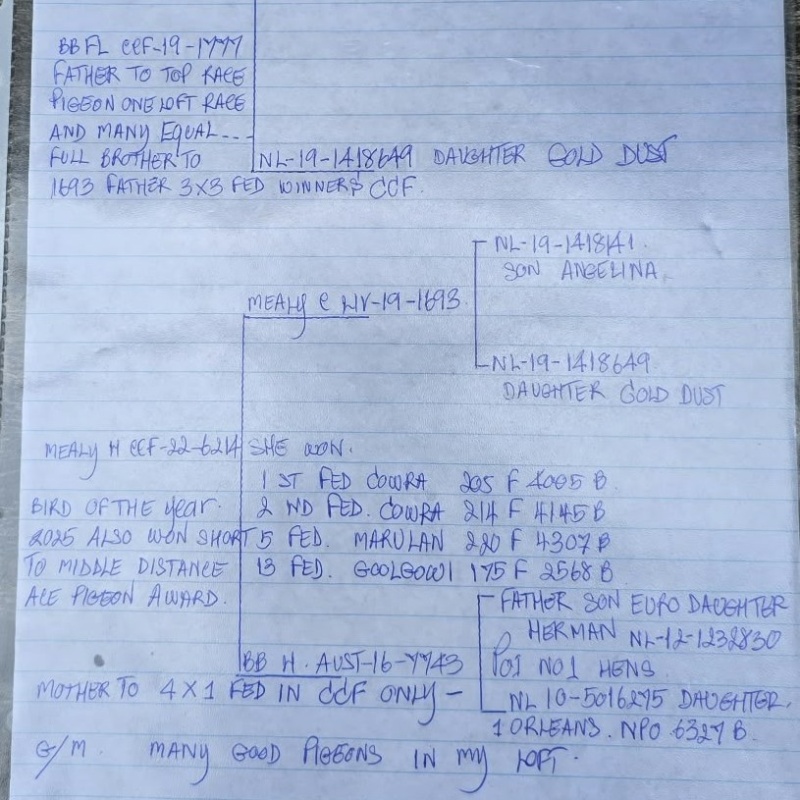 BBFL CCF-19-1777
FATHER TO TOP RACE
PIGEON ONE LOFT RACE
AND MANY EQUAL...
FULL BROTHER TO
NL-19-1418649 DAUGHTER GOLD DUST
1693 FATHER 3X3 FED WINNERS CCF.
NL-19-1418141.
SON ANGELINA.
MEALY C NV-19-1693
NL-19-1418649.
DAUGHTER GOLD DUST
MEALY H CCF-22-6214
SHE WON.
1 ST FED COWRA 205 F 4005 B
BIRD OF THE year.
2 ND FED. COWRA 214 F 4145 B
2025 ALSO WON SHORT
5 FED. MARULAN 220 F 4307 B
TO MIDDLE DISTANCE
13 FED. GOOLGOWI 175 F 2568 B
ACE PIGEON AWARD.
FATHER SON EURO DAUGHTER
HERMAN NL-12-1232830
BB H. AUST-16-7743
NO1 HENS
MOTHER TO 4X1 FED IN CCF ONLY -
NL 10-5016275 DAUGHTER.
1 ORLEANS. NPO 6327 B.
G/M. MANY GOOD PIGEONS IN MY LOFT.